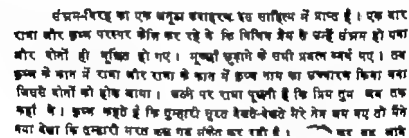 संभ्रम-विरह का एक अनूठा उदाहरण इस साहित्य में प्राप्त है । एक बार
राधा और कृष्ण परस्पर केलि कर रहे थे कि विचित्र प्रेम के उन्हें संभ्रम हो गया
और दोनों ही मूर्छित हो गए । मूर्च्छा छुड़ाने के सभी प्रयत्न व्यर्थ गए । तब
कृष्ण के कान में राधा और राधा के कान में कृष्ण नाम का उच्चारण किया गया
जिससे दोनों को होश आया । उठने पर राधा पूछती हैं कि प्रिय तुम अब तक
कहाँ थे । कृष्ण कहते हैं कि तुम्हारी सूरत देखते-देखते मेरे नेत्र भर गए तो मैंने
क्या देखा कि तुम्हारी सूरत कर रही है ।